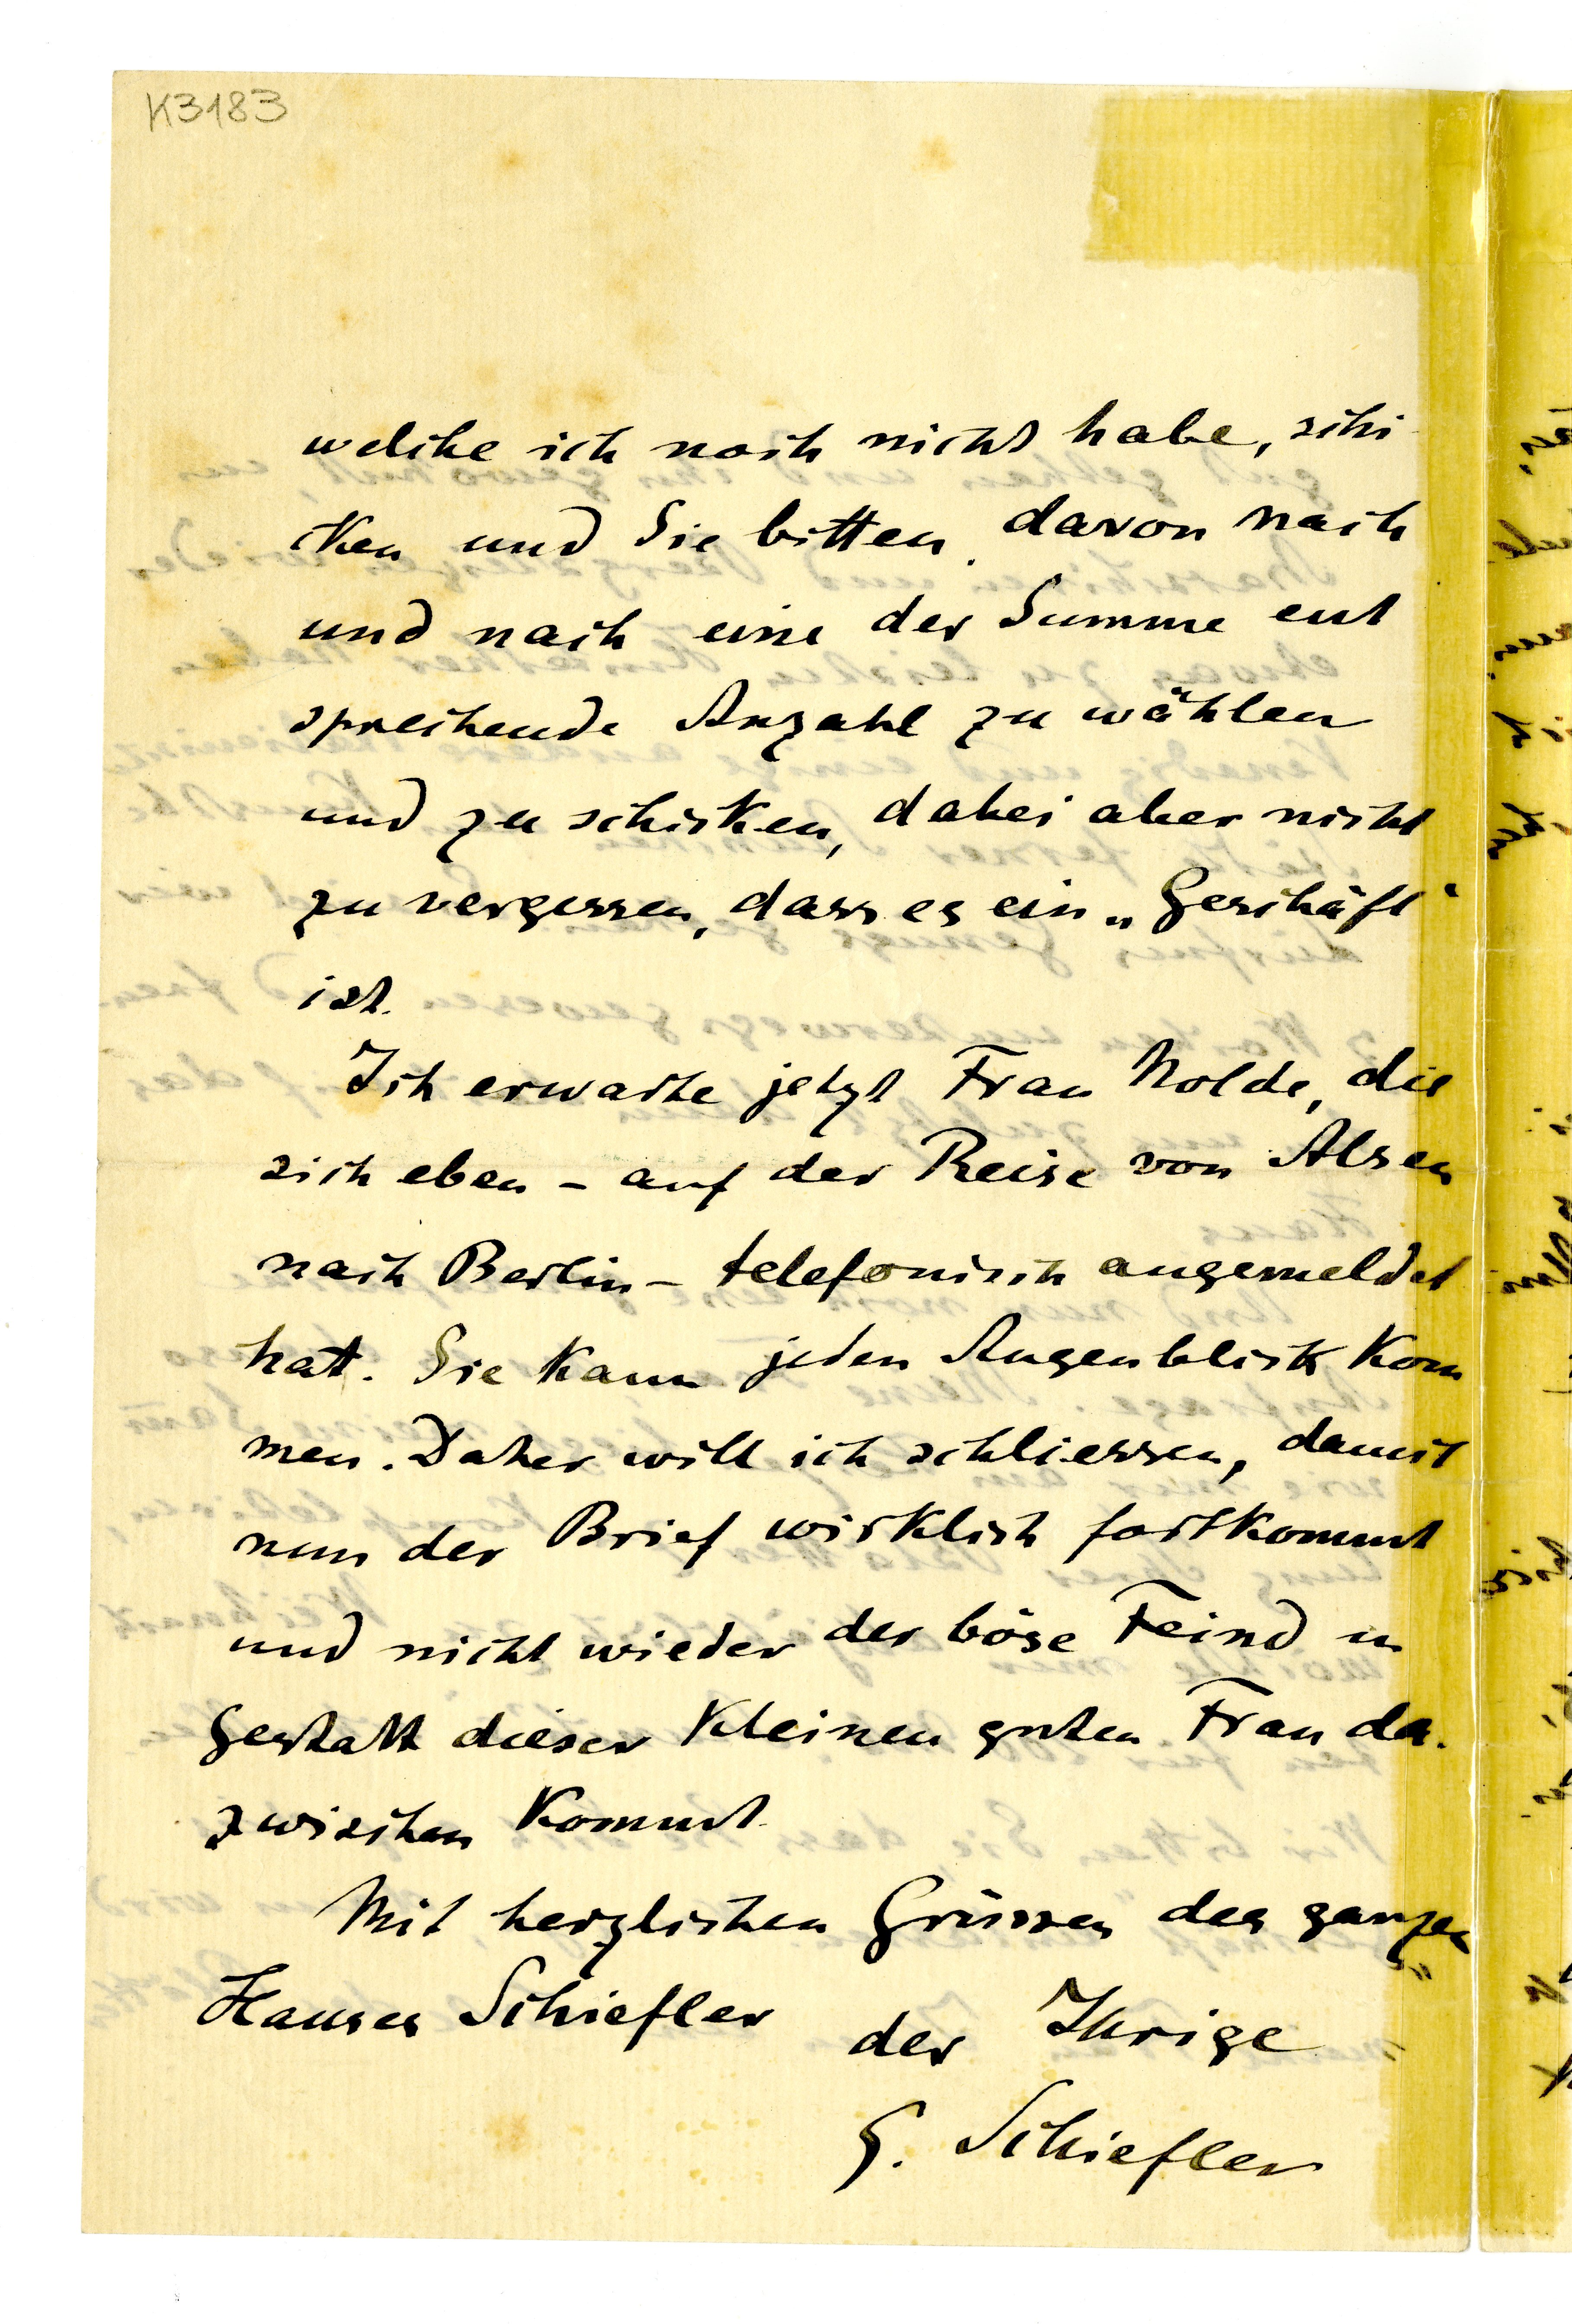 K3183
welche ich noch nicht habe, schi
cken und Sie bitten, davon nach
und nach eine der Summe ent
sprechende Anzahl zu wählen
und zu schicken, dabei aber nicht
zu vergessen, dass es ein „Geschäft“
ist.
Ich erwarte jetzt Frau Nolde, die
sich eben – auf der Reise von Alsen
nach Berlin – telefonisch angemeldet
hat. Sie kann jeden Augenblick kom
men. Daher will ich schliessen, damit
nun der Brief wirklich fortkommt
und nicht wieder der böse Feind in
Gestalt dieser kleinen guten Frau da-
zwischen kommt.
Mit herzlichen Grüssen des ganzen
Hauses Schiefler
der Ihrige
G. Schiefler